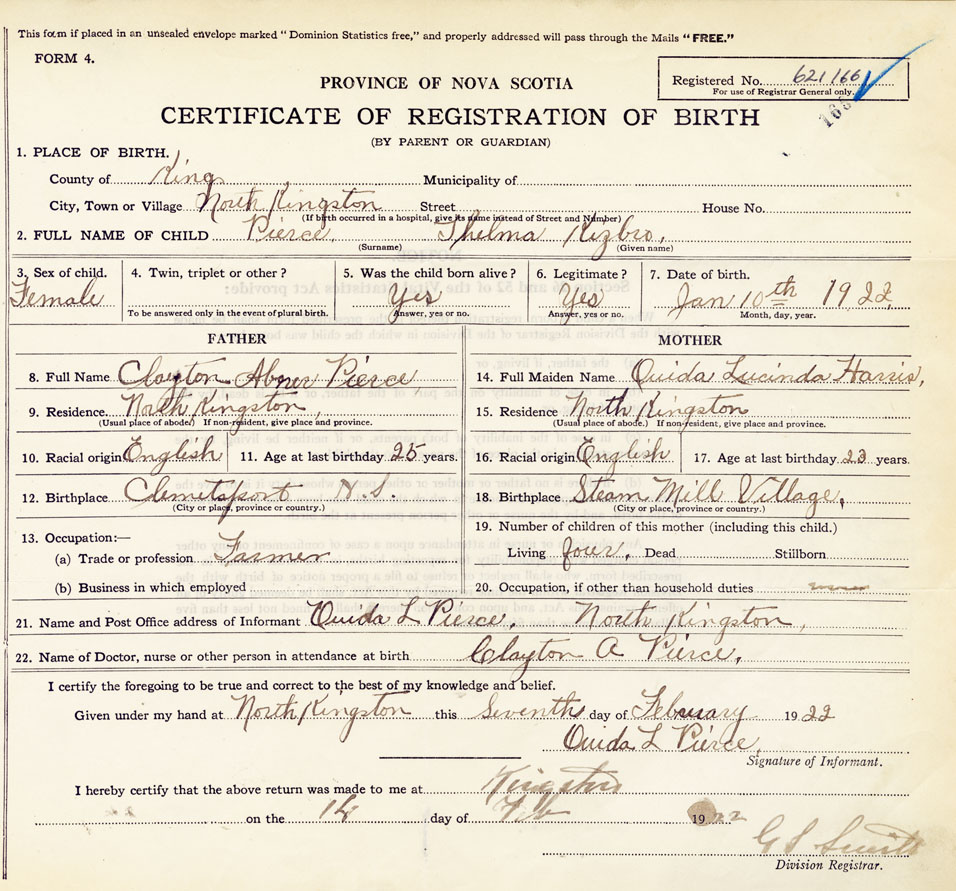 This form if placed in an unsealed envelope marked "Dominion Statistics free," and properly addressed will pass through the Mails "FREE."
FORM 4.
Registered No. 621166
For use of Registrar General only.
166
PROVINCE OF NOVA SCOTIA
CERTIFICATE OF REGISTRATION OF BIRTH
(BY PARENT OR GUARDIAN)
1. PLACE OF BIRTH.
County of Kings Municipality of
City, Town or Village North Kingston Street House No.
(If birth occurred in a hospital, give its name instead of Street and Number)
2. FULL NAME OF CHILD Pierce, Thelma Kizbro,
(Surname) (Given name)
3. Sex of child. 4. Twin, triplet or other? 5. Was the child born alive? 6. Legitimate? 7. Date of birth.
Female Yes Yes Jan 10th 1922
To be answered only in the event of plural birth. Answer, yes or no. Answer, yes or no. Month, day, year.
FATHER
8. Full Name Clayton Abner Pierce
9. Residence. North Kingston,
(Usual place of abode.) If non-resident, give place and province.
10. Racial origin English 11. Age at last birthday 25 years.
12. Birthplace Clemetsport N.S.
(City or place, province or country.)
13. Occupation:—
(a) Trade or profession Farmer
(b) Business in which employed
MOTHER
14. Full Maiden Name Ouida Lucinda Harris,
15. Residence North Kingston
(Usual place of abode.) If non-resident, give place and province.
16. Racial origin English 17. Age at last birthday 23 years.
18. Birthplace Steam Mill Village,
(City or place, province or country.)
19. Number of children of this mother (including this child.)
Living four, Dead Stillborn
20. Occupation, if other than household duties
21. Name and Post Office address of Informant Ouida L Pierce, North Kingston,
22. Name of Doctor, nurse or other person in attendance at birth Clayton A Pierce,
I certify the foregoing to be true and correct to the best of my knowledge and belief.
Given under my hand at North Kingston this Seventh day of February 1922
Ouida L Pierce,
Signature of Informant.
I hereby certify that the above return was made to me at Kingston
on the 14 day of Feb 1922
G S Smith
Division Registrar.